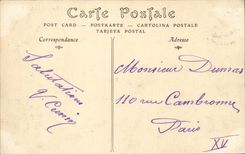 Carte Postale
POST CARD — POSTKARTE — CARTOLINA POSTALE
TARJETA POSTAL
Correspondance
Adresse
Salutations
Monsieur Dumas
110 rue Cambronne
Paris
XV